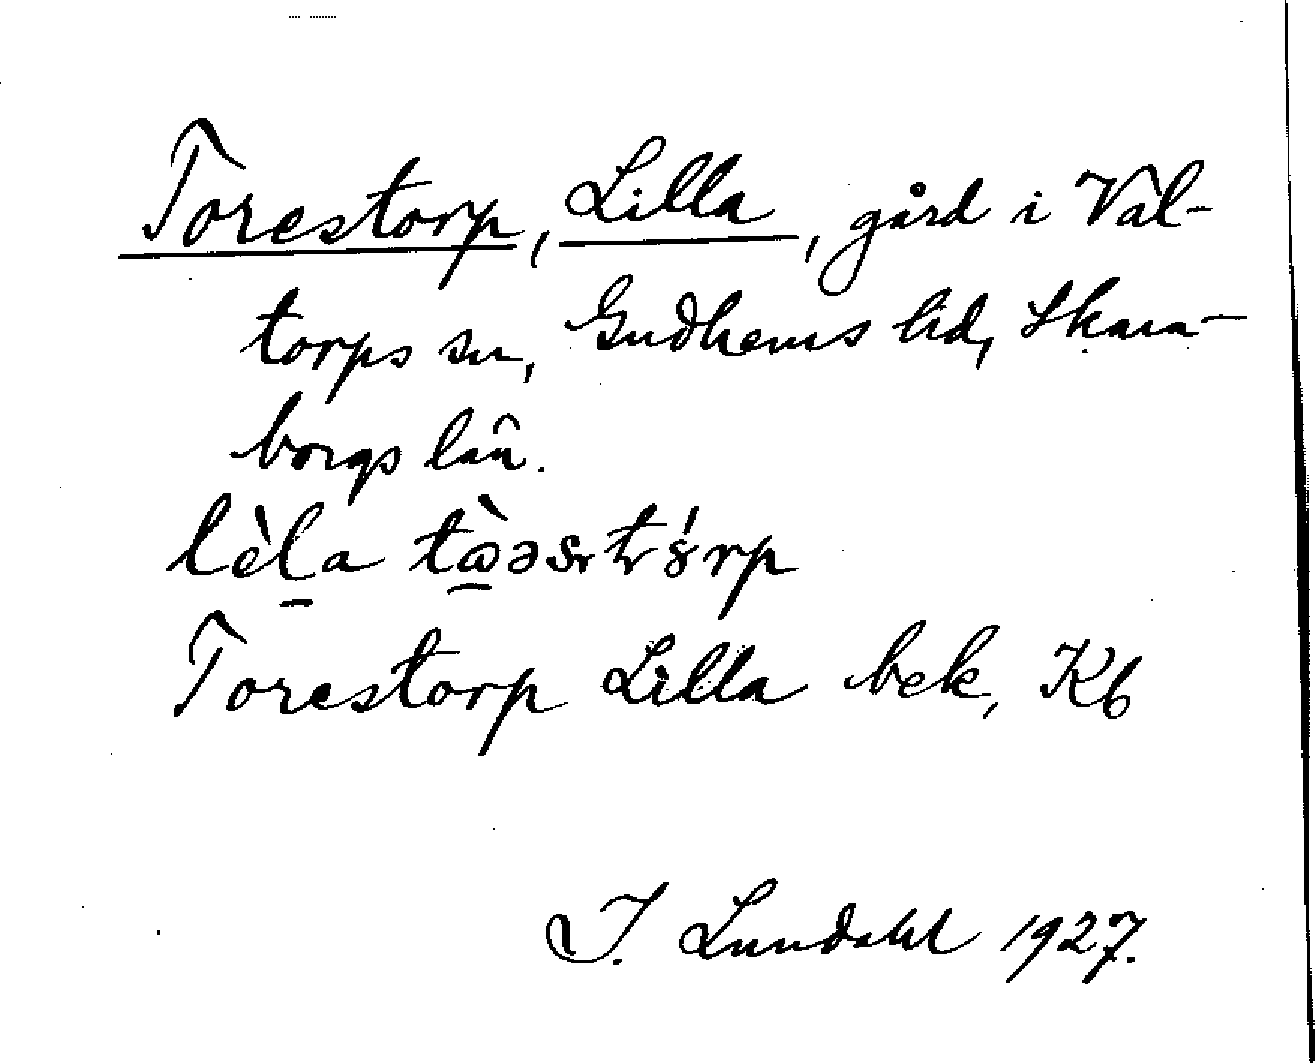 Torestorp, Lilla, gård i Val-
torps sn, Gudhems hd, Skara-
borgs län.
lèl̠a tɷ̠̀əstrp
Torestorp Lilla bek, Kb
I. Lundahl 1927.